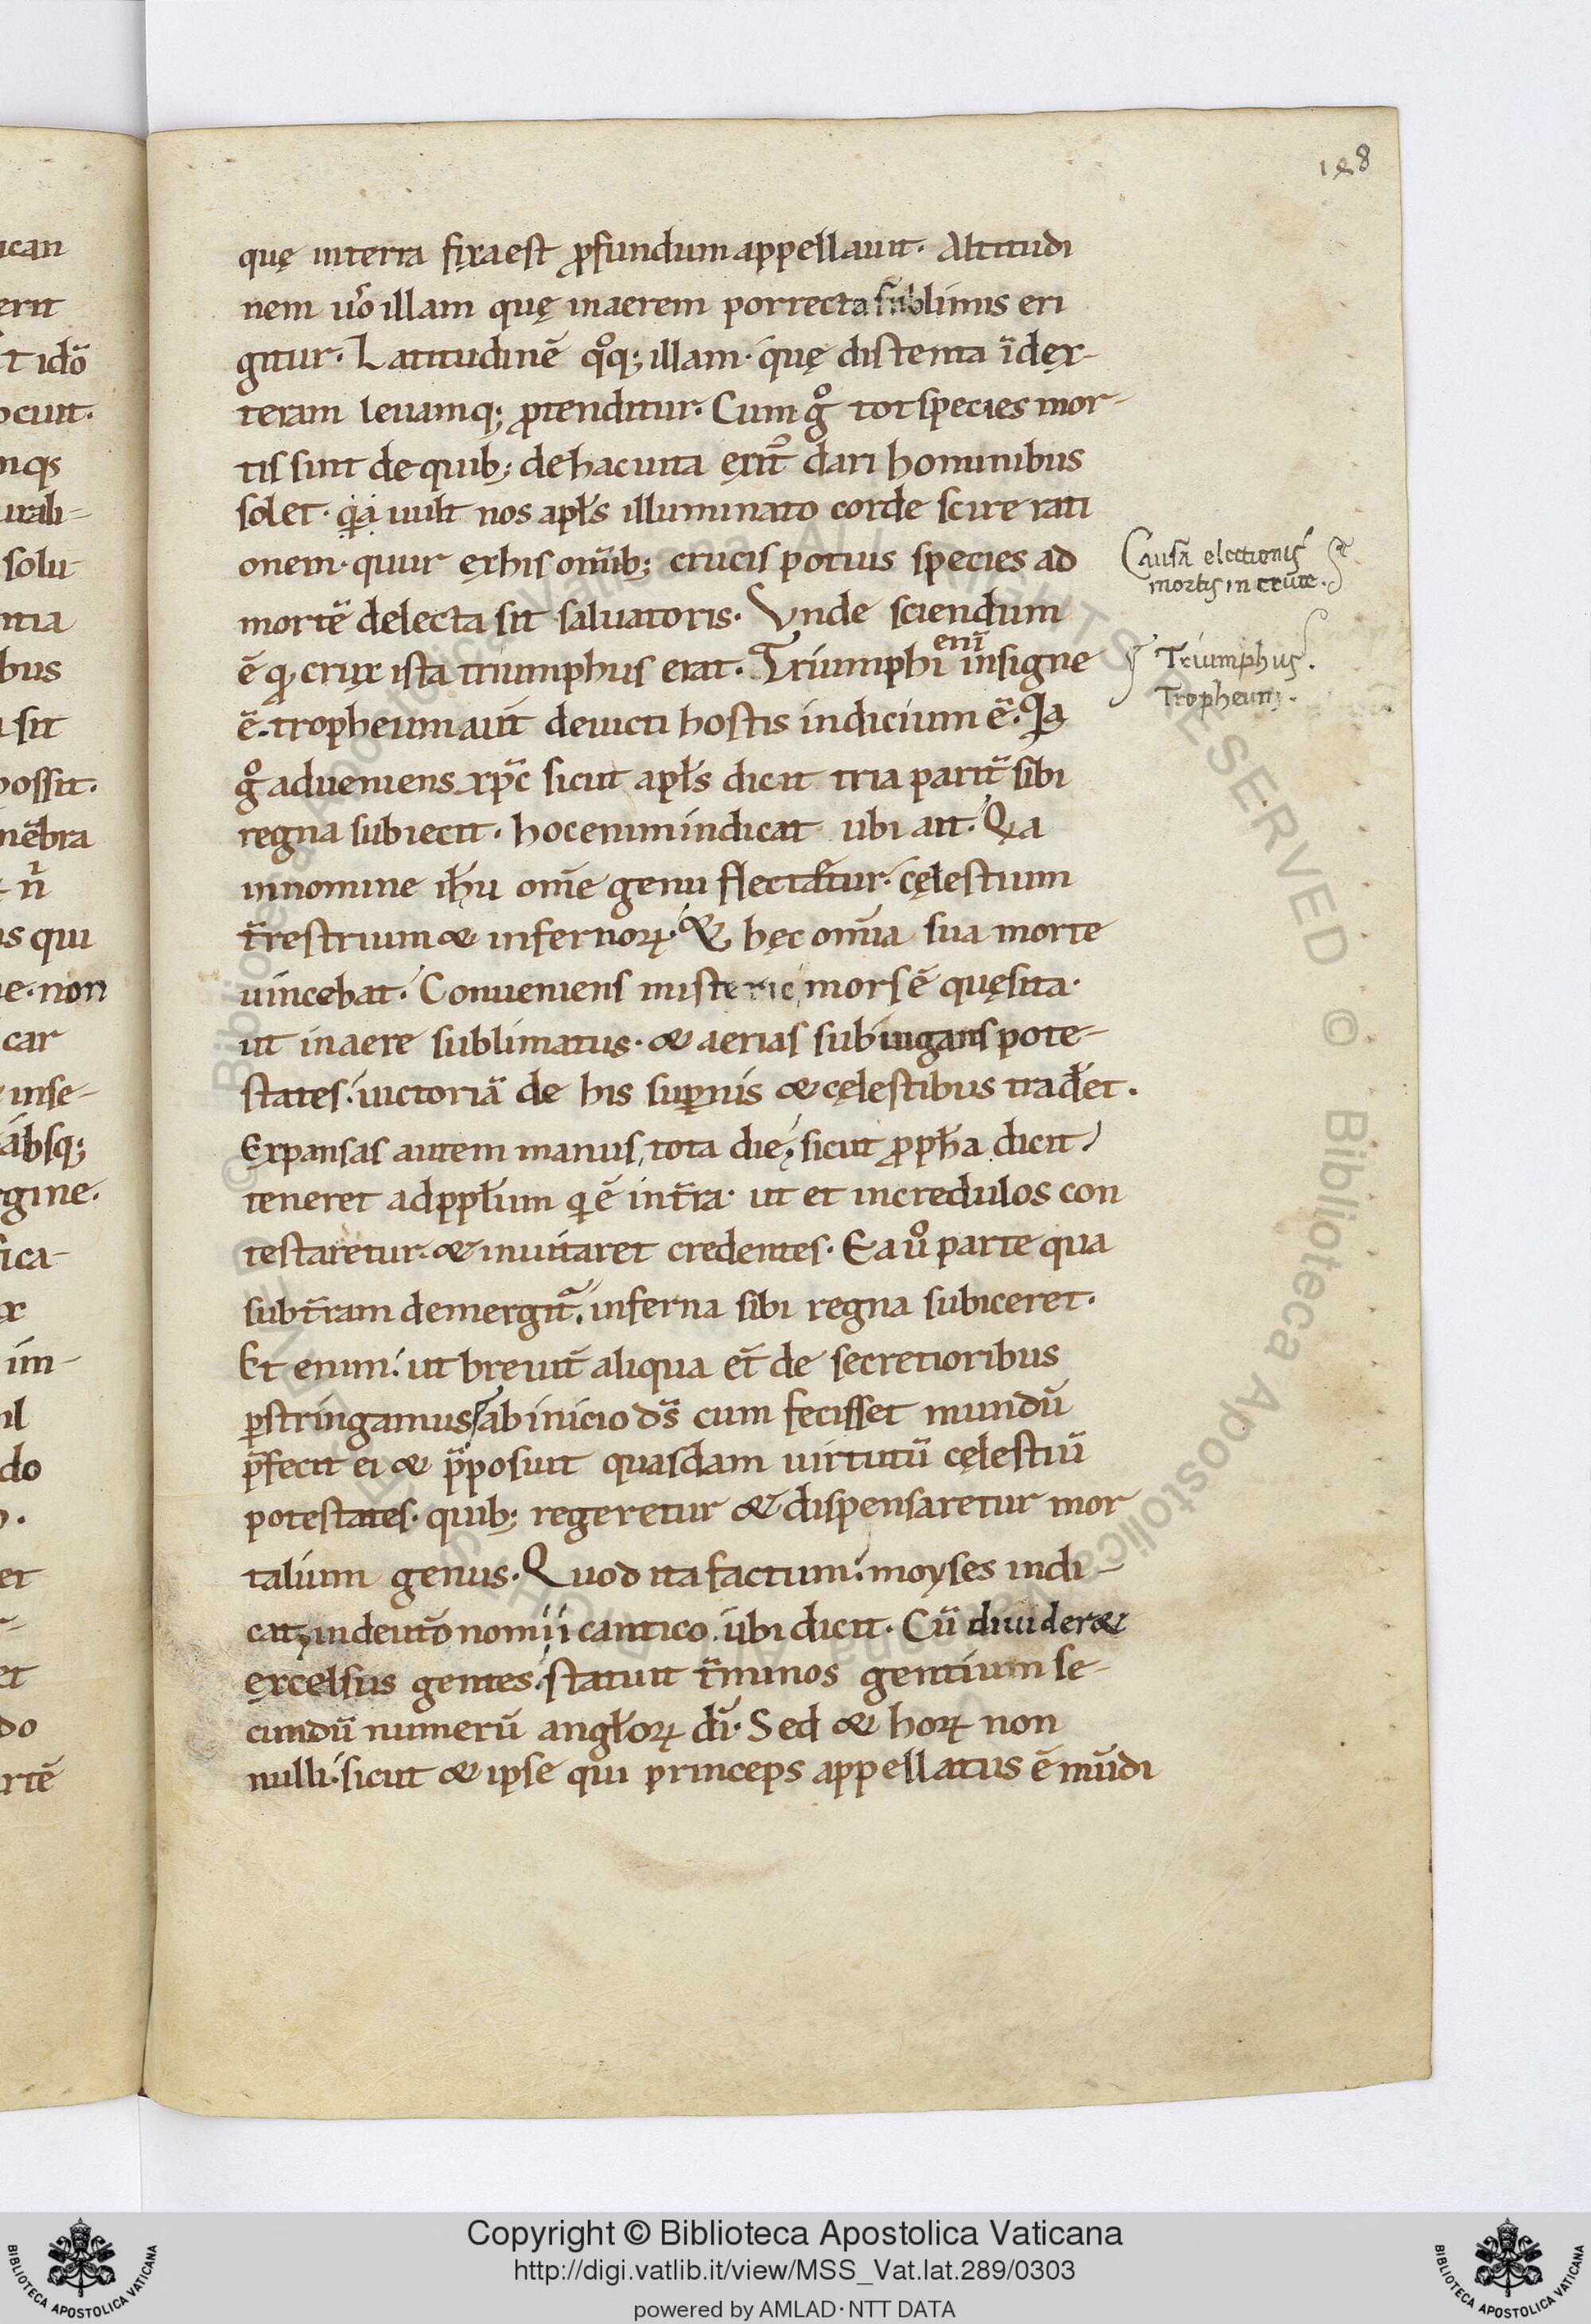 148
quę interra fixa est ꝓfundum appellauit. Altitudi
nem ůo illam quę inaerem porrecta sublimis eri
gitur. Latitudinē qͦq; illam. quę distenta īdex-
teram leuamq; ꝓtenditur. Cum gͦ tot species mor-
tis sint de quib; dehacuita exit᷑ dari hominibus
solet. q̇a uult nos apl̄s illuminato corde scire rati
onem. quur exhis omīb; crucis potius species ad
mortē delecta sit saluatoris. Vnde sciendum
ē qđ crux ista triumphus erat. Triumphi enī insigne
ē. tropheum aut̄ deuicti hostis indicium ē. Qa
gͦ adueniens xp̄c sicut apl̄s dicit tria parit̄ sibi
regna subiecit. hoc enim indicat ubi ait. Qa
innomine ih̄u om̄e genu flectatur. cęlestium
t̄restrium & infernoꝝ. & hęc om̄ia sua morte
uincebat. Conueniens misterio mors ē quęsita.
ut inaere sublimatus. & aerias subiugans pote-
states. uictoriā de his suꝑnis & cęlestibus trad̄et.
Expansas autem manus tota die, sicut ꝓph̄a dicit
teneret adppl̄m q̇ ē int̄ra. ut et incredulos con
testaretur. & inuitaret credentes. Ea ůo parte qua
subt̄ram demergit᷑. inferna sibi regna subiceret.
Et enim. ut breuit̄ aliqua et̄ de secretioribus
ꝑstringamus, ab inicio ds̄ cum fecisset mundū
p̄fecit ei & p̄posuit quasdam uirtutū cęlestiū
potestates. quib; regeretur & dispensaretur mor
talium genus. Quod ita factum. moyses indi-
cat, indeut̄onomii cantico ubi dicit. Cū diuider&
excelsus gentes. statuit t̄minos gentium se-
cundū numerū angl̄oꝝ dī. Sed & hoꝝ non
nulli. sicut & ipse qui princeps appellatus ē mūdi
Causā electionis
mortis in cruce.
Triumphus.
Tropheum.
Copyright © Biblioteca Apostolica Vaticana
http://digi.vatlib.it/view/MSS_Vat.lat.289/0303
powered by AMLAD·NTT DATA
BIBLIOTECA APOSTOLICA VATICANA
BIBLIOTECA APOSTOLICA VATICANA